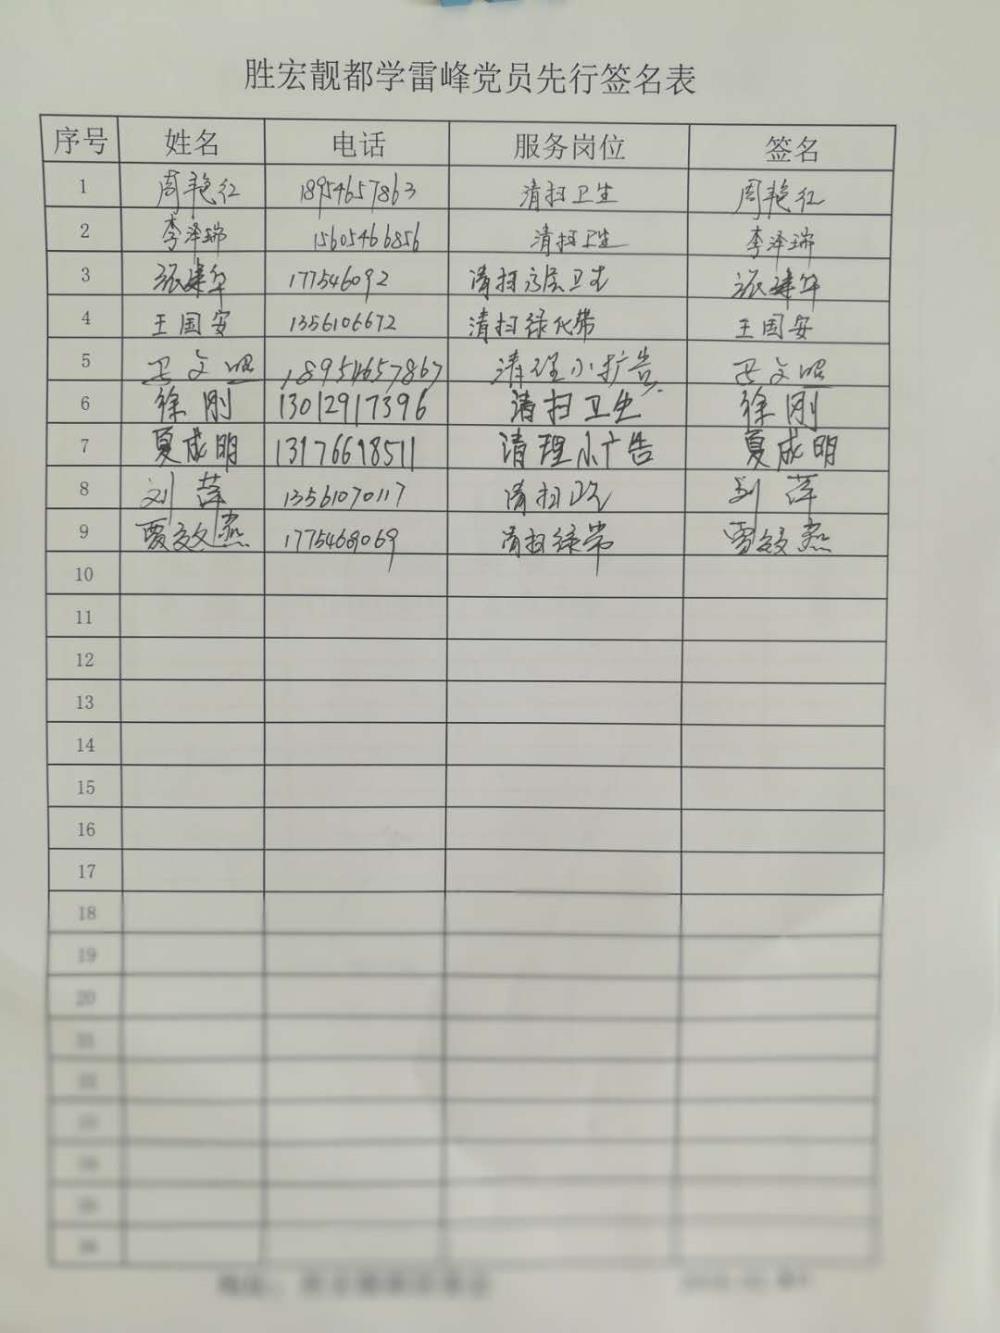 胜宏靓都学雷峰党员先行签名表
序号 姓名 电话 服务岗位 签名
1 周艳红 18954657863 清扫卫生 周艳红
2 李泽瑞 15605466856 清扫卫生 李泽瑞
3 张建华 177546092 清扫 卫生 张建华
4 王国安 1356106672 清扫绿化带 王国安
5 文 18954657867 清理小广告 文
6 徐刚 13012917396 清扫卫生 徐刚
7 夏成明 13176698511 清理小广告 夏成明
8 刘萍 13561070117 清扫 刘萍
9 贾效燕 1775468069 清扫绿带 贾效燕
10
11
12
13
14
15
16
17
18
19
20